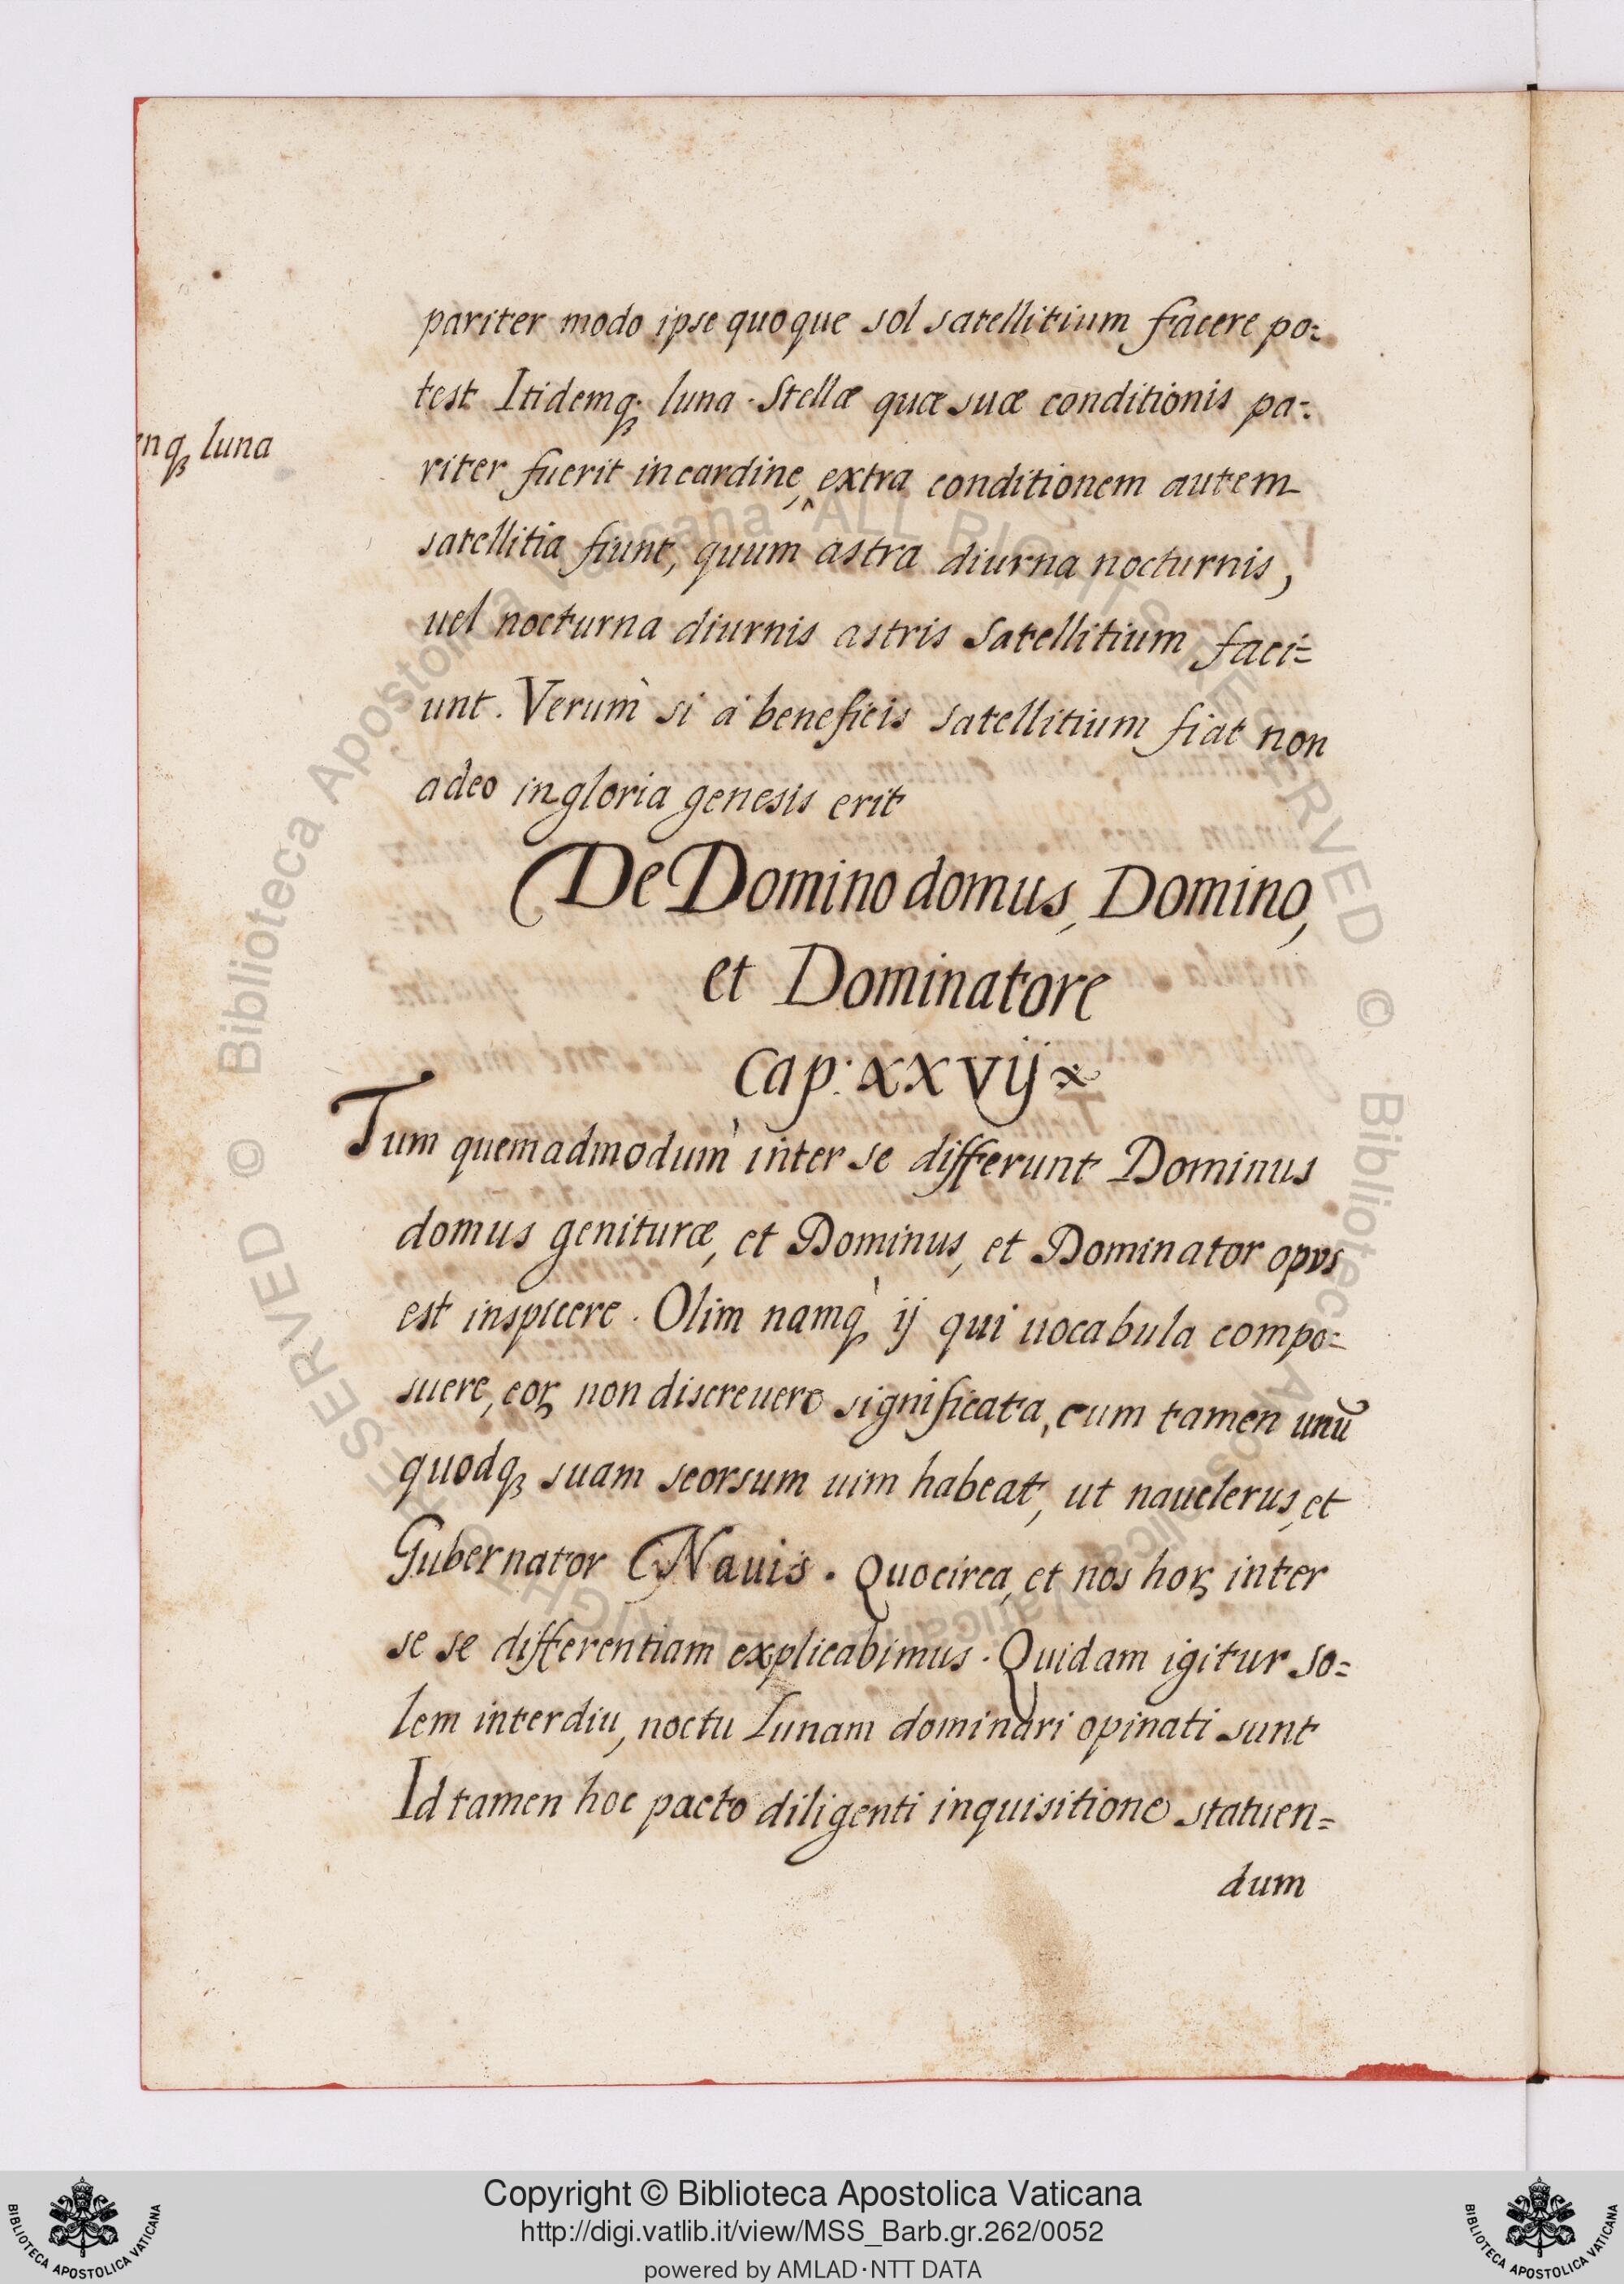 pariter modo ipse quoque sol satellitium facere po=
test Itidemq; luna. Stellæ quæ suæ conditionis pa=
nq; luna
riter fuerit in cardine, ^ extra conditionem autem
satellitia fiunt, quum astra diurna nocturnis,
uel nocturna diurnis astris satellitium faci=
unt. Verum̀ si à beneficis satellitium fiat non
adeo ingloria genesis erit
De Domino domus, Domino,
et Dominatore
Cap: xxvij
Tum quemadmodum̀ inter se differunt Dominus
domus genituræ, et Dominus, et Dominator opus
est inspicere. Olim namq̀; ij qui uocabula compo=
suere, eoꝝ non discreuere significata, cum tamen unũ
quodq; suam seorsum uim habeat, ut nauclerus, et
Gubernator Nauis. Quocirca, et nos hoꝝ inter
se se differentiam explicabimus. Quidam igitur so=
lem interdiu, noctu Lunam dominari opinati sunt
Id tamen hoc pacto diligenti inquisitione statuen=
dum
© Biblioteca Apostolica Vaticana ALL RIGHTS RESERVED © Biblioteca Apostolica Vaticana ALL RIGHTS RESERVED
Copyright © Biblioteca Apostolica Vaticana
http://digi.vatlib.it/view/MSS_Barb.gr.262/0052
powered by AMLAD·NTT DATA
BIBLIOTECA APOSTOLICA VATICANA
BIBLIOTECA APOSTOLICA VATICANA